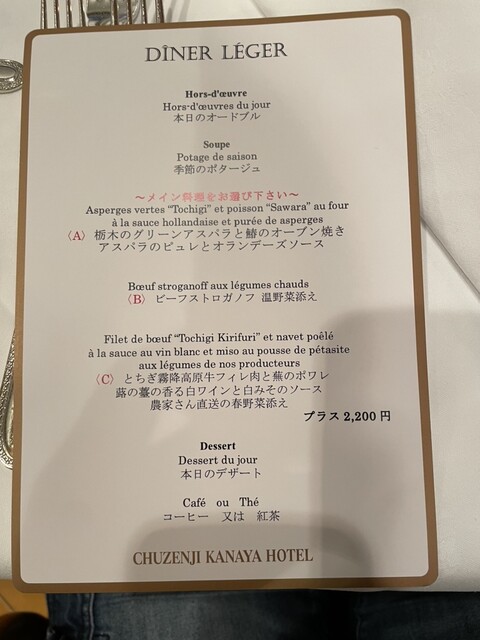 DÎNER LÉGER
Hors-d'œuvre
Hors-d'œuvres du jour
本日のオードブル
Soupe
Potage de saison
季節のポタージュ
～メイン料理をお選び下さい～
Asperges vertes “Tochigi” et poisson “Sawara” au four
à la sauce hollandaise et purée de asperges
〈A〉 栃木のグリーンアスパラと鰆のオーブン焼き
アスパラのピュレとオランデーズソース
Bœuf stroganoff aux légumes chauds
〈B〉 ビーフストロガノフ 温野菜添え
Filet de bœuf “Tochigi Kirifuri” et navet poêlé
à la sauce au vin blanc et miso au pousse de pétasite
aux légumes de nos producteurs
〈C〉 とちぎ霧降高原牛フィレ肉と蕪のポワレ
蕗の薹の香る白ワインと白みそのソース
農家さん直送の春野菜添え
プラス 2,200 円
Dessert
Dessert du jour
本日のデザート
Café ou Thé
コーヒー 又は 紅茶
CHUZENJI KANAYA HOTEL